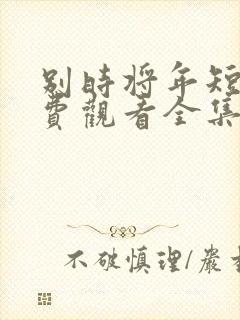 别時将年短
費觀看全集
不破慎理/嚴